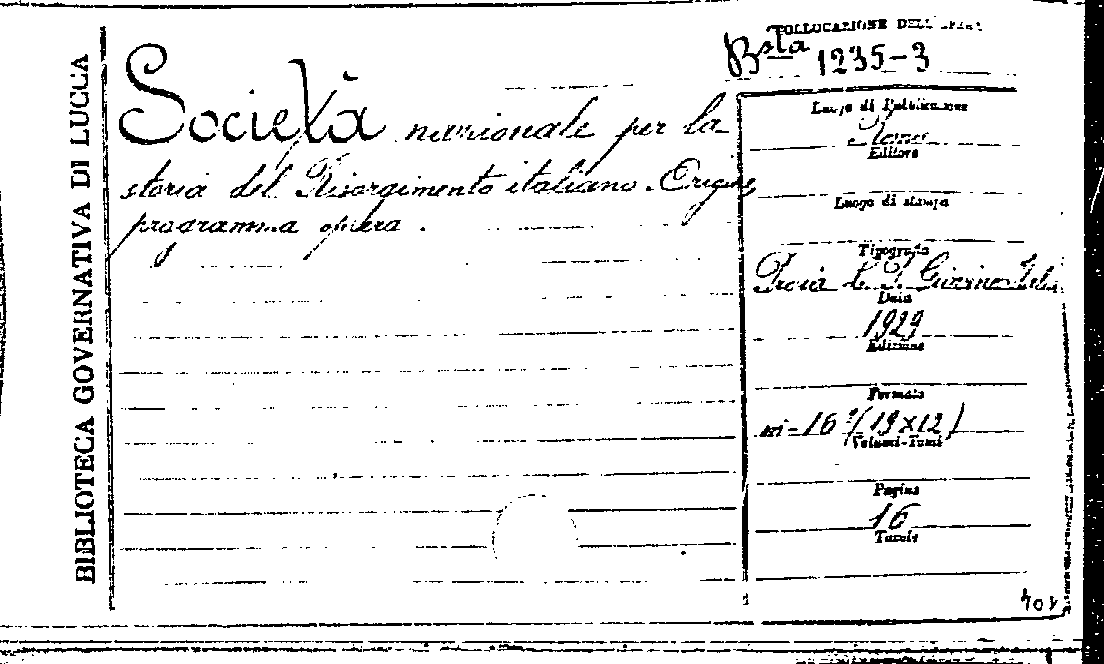 BIBLIOTECA GOVERNATIVA DI LUCCA
Società nazionale per la
storia del Risorgimento italiano. Origine
programma opera.
COLLOCAZIONE DELL'
Bsta 1235-3
Luogo di Pubblicazione
Roma
Editore
Luogo di stampa
Tipografia
Data
1929
Edizione
Formato
in-16º (19×12)
Volumi-Tomi
Pagine
16
Tavole